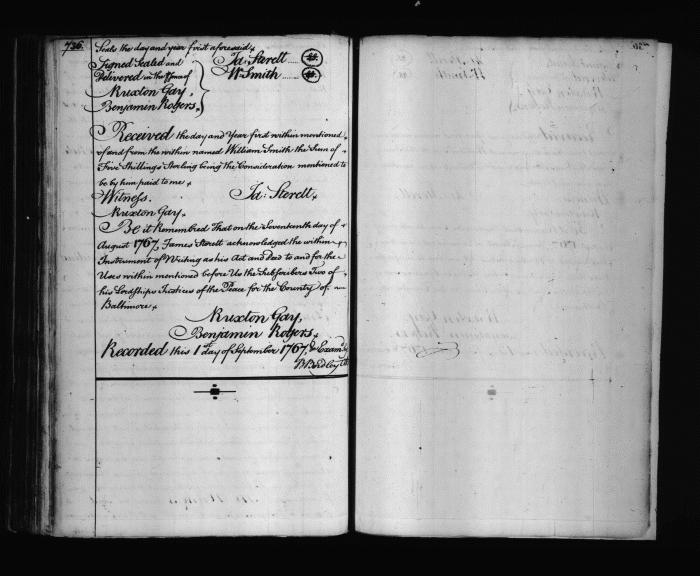 736.
Seals the day and year first aforesaid
Signed Sealed and
Delivered in the of
Nuxton Gay,
Benjamin Rogers,
Ja: Sterett
Wm Smith
Received the day and Year first within mentioned
of and from the within named William Smith the Sum of
Five Shillings Sterling being the Consideration mentioned to
be by him paid to me
Witness. Ja: Sterett
Nuxton Gay.
Be it Remembred That on the Seventeenth day of
August 1767, James Sterett acknowledged the within
Instrument of Writing as his Act and Deed to and for the
Uses within mentioned before Us the Subscribers Two of
his Lordships Justices of the Peace for the County of
Baltimore
Nuxton Gay,
Benjamin Rogers
Recorded this 1st day of September 1767, & Examd